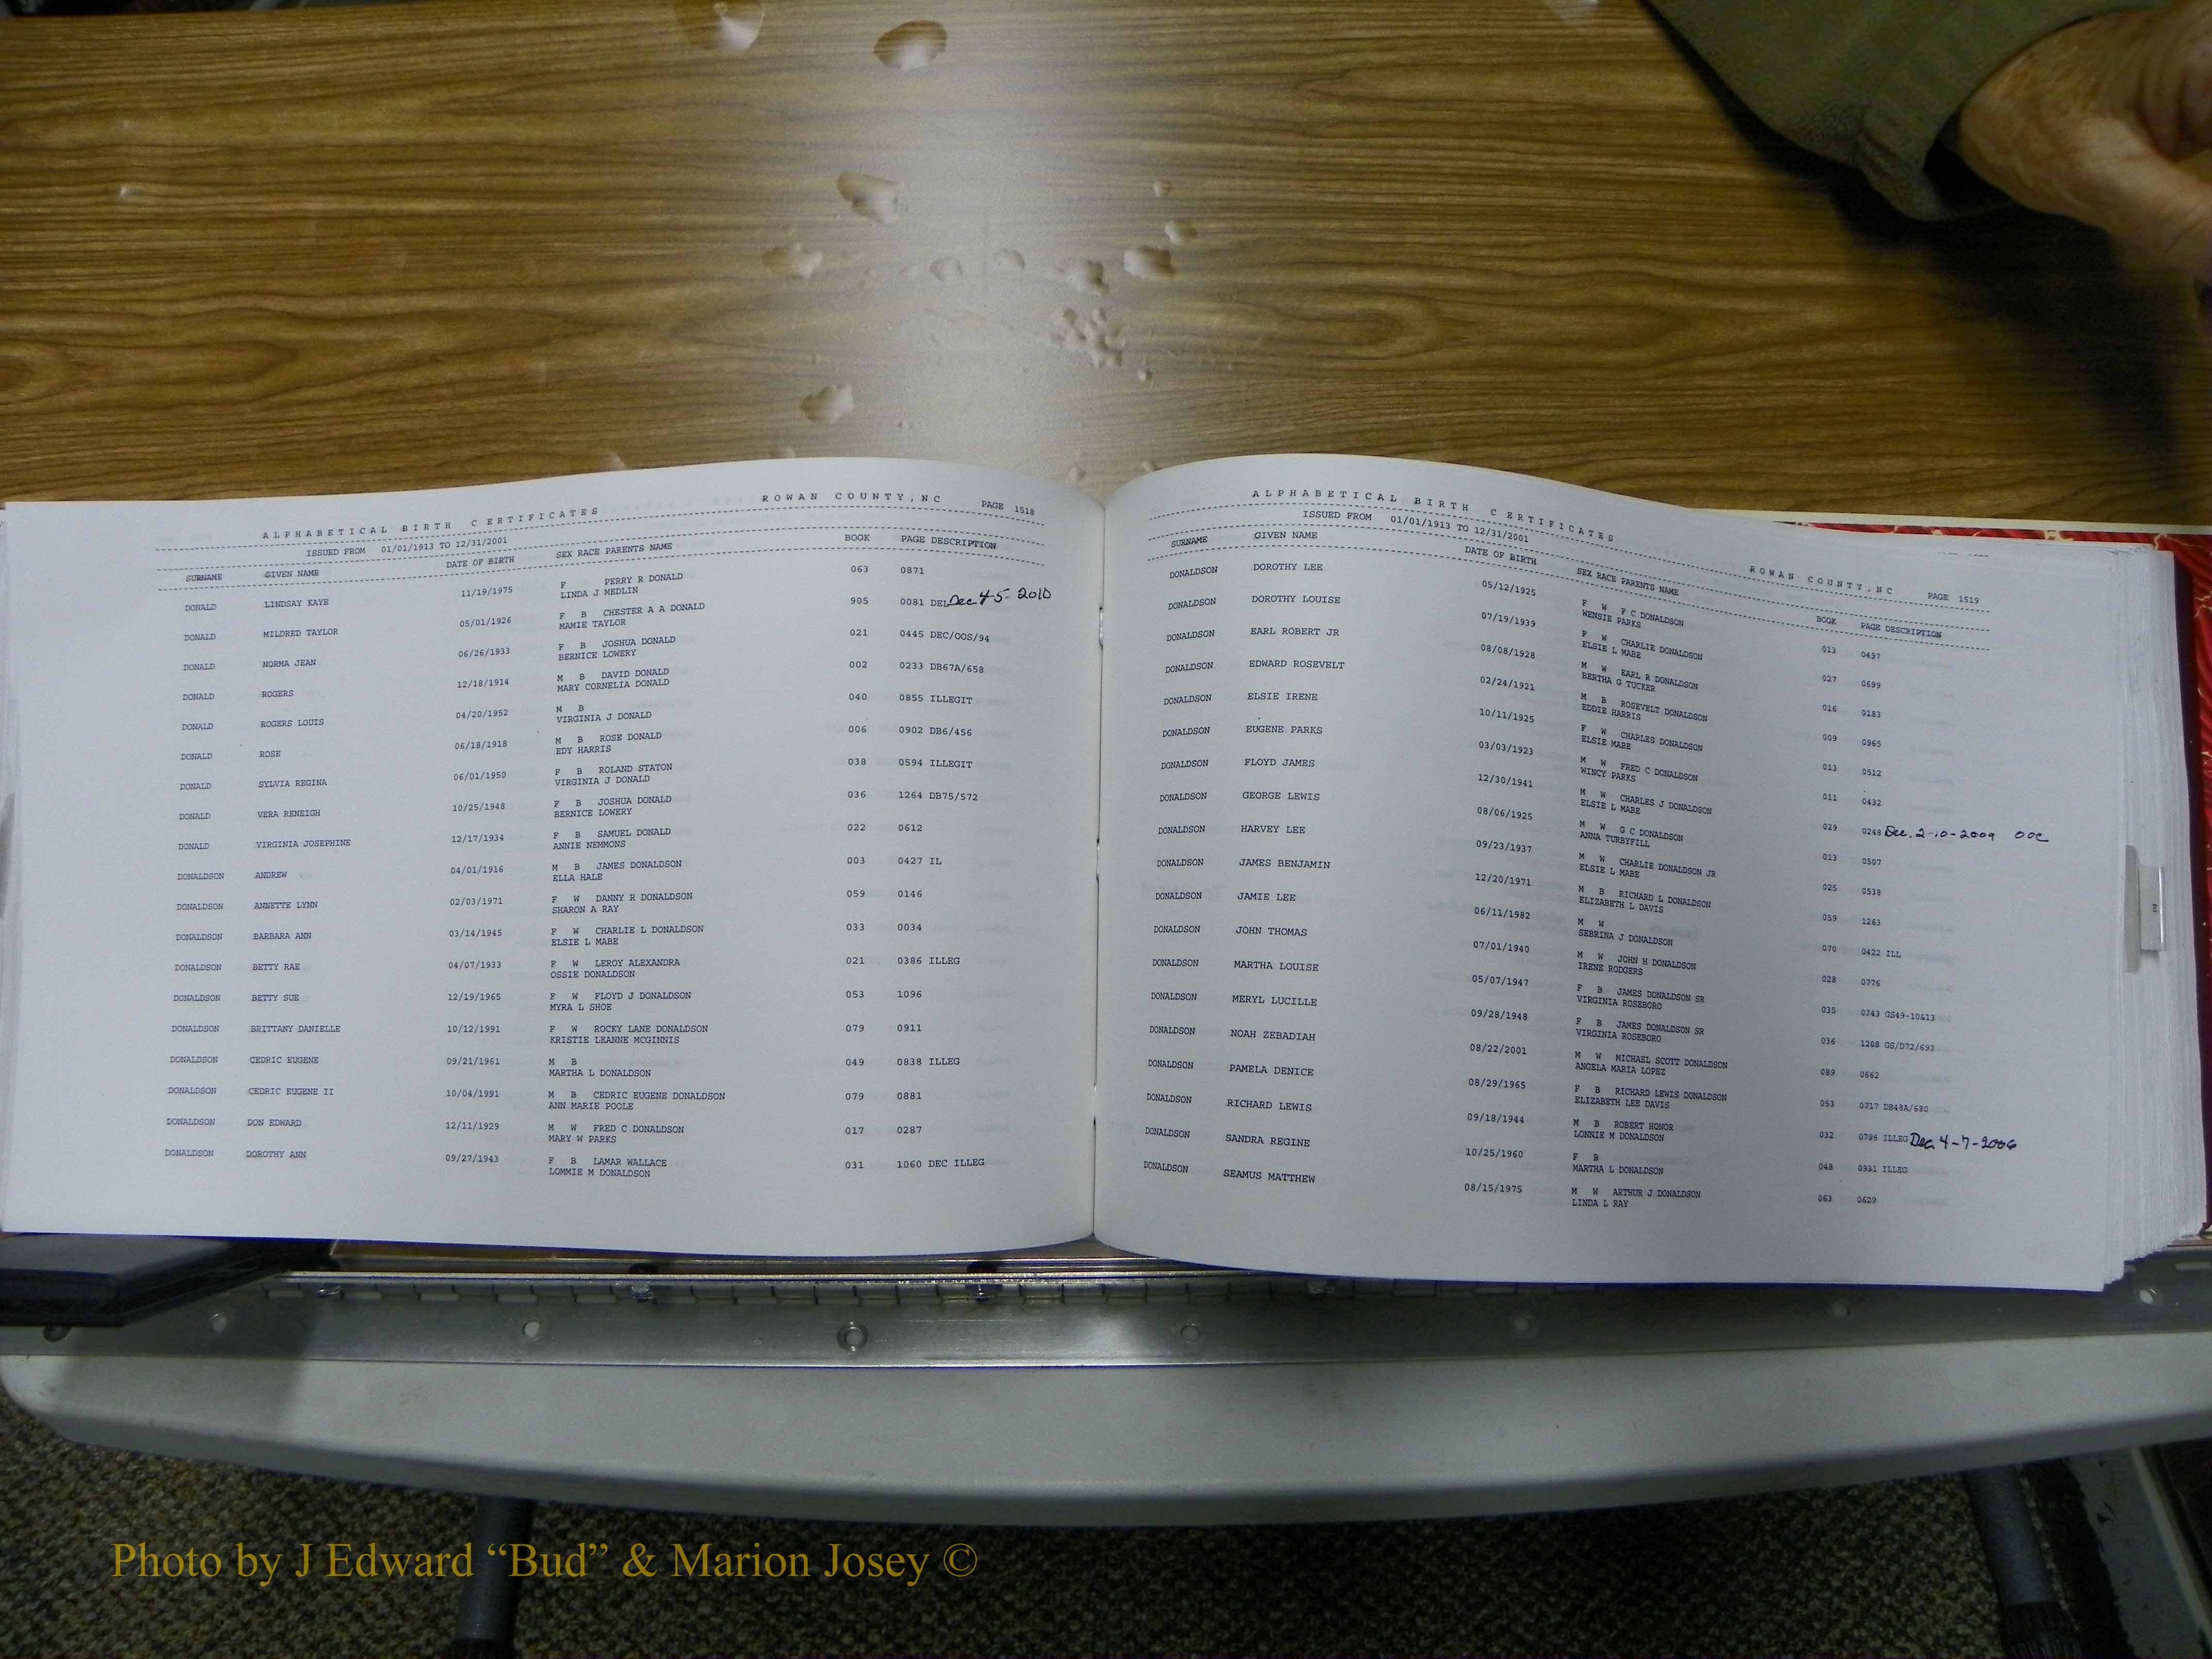 ALPHABETICAL BIRTH CERTIFICATES ROWAN COUNTY, NC PAGE 1518
ISSUED FROM 01/01/1913 TO 12/31/2001
SURNAME GIVEN NAME DATE OF BIRTH SEX RACE PARENTS NAME BOOK PAGE DESCRIPTION
DONALD LINDSAY KAYE 11/19/1975 F PERRY R DONALD 063 0871
LINDA J MEDLIN
DONALD MILDRED TAYLOR 05/01/1926 F B CHESTER A A DONALD 905 0081 DEL Dec 4-5-2010
MAMIE TAYLOR
DONALD NORMA JEAN 06/26/1933 F B JOSHUA DONALD 021 0445 DEC/OOS/94
BERNICE LOWERY
DONALD ROGERS 12/18/1914 M B DAVID DONALD 002 0233 DB67A/658
MARY CORNELIA DONALD
DONALD ROGERS LOUIS 04/20/1952 M B 040 0855 ILLEGIT
VIRGINIA J DONALD
DONALD ROSE 06/18/1918 M B ROSE DONALD 006 0902 DB6/456
EDY HARRIS
DONALD SYLVIA REGINA 06/01/1950 F B ROLAND STATON 038 0594 ILLEGIT
VIRGINIA J DONALD
DONALD VERA RENEIGH 10/25/1948 F B JOSHUA DONALD 036 1264 DB75/572
BERNICE LOWERY
DONALD VIRGINIA JOSEPHINE 12/17/1934 F B SAMUEL DONALD 022 0612
ANNIE NEMMONS
DONALDSON ANDREW 04/01/1916 M B JAMES DONALDSON 003 0427 IL
ELLA HALE
DONALDSON ANNETTE LYNN 02/03/1971 F W DANNY R DONALDSON 059 0146
SHARON A RAY
DONALDSON BARBARA ANN 03/14/1945 F W CHARLIE L DONALDSON 033 0034
ELSIE L MABE
DONALDSON BETTY RAE 04/07/1933 F W LEROY ALEXANDRA 021 0386 ILLEG
OSSIE DONALDSON
DONALDSON BETTY SUE 12/19/1965 F W FLOYD J DONALDSON 053 1096
MYRA L SHOE
DONALDSON BRITTANY DANIELLE 10/12/1991 F W ROCKY LANE DONALDSON 079 0911
KRISTIE LEANNE MCGINNIS
DONALDSON CEDRIC EUGENE 09/21/1961 M B 049 0838 ILLEG
MARTHA L DONALDSON
DONALDSON CEDRIC EUGENE II 10/04/1991 M B CEDRIC EUGENE DONALDSON 079 0881
ANN MARIE POOLE
DONALDSON DON EDWARD 12/11/1929 M W FRED C DONALDSON 017 0287
MARY W PARKS
DONALDSON DOROTHY ANN 09/27/1943 F B LAMAR WALLACE 031 1060 DEC ILLEG
LOMMIE M DONALDSON
ALPHABETICAL BIRTH CERTIFICATES ROWAN COUNTY, NC PAGE 1519
ISSUED FROM 01/01/1913 TO 12/31/2001
SURNAME GIVEN NAME DATE OF BIRTH SEX RACE PARENTS NAME BOOK PAGE DESCRIPTION
DONALDSON DOROTHY LEE 05/12/1925 F W F C DONALDSON 013 0497
WENSIE PARKS
DONALDSON DOROTHY LOUISE 07/19/1939 F W CHARLIE DONALDSON 027 0699
ELSIE L MABE
DONALDSON EARL ROBERT JR 08/08/1928 M W EARL R DONALDSON 016 0183
BERTHA G TUCKER
DONALDSON EDWARD ROSEVELT 02/24/1921 M B ROSEVELT DONALDSON 009 0965
EDDIE HARRIS
DONALDSON ELSIE IRENE 10/11/1925 F W CHARLES DONALDSON 013 0512
ELSIE MABE
DONALDSON EUGENE PARKS 03/03/1923 M W FRED C DONALDSON 011 0432
WINCY PARKS
DONALDSON FLOYD JAMES 12/30/1941 M W CHARLES J DONALDSON 029 0248 Dec. 2-10-2009 OOC
ELSIE L MABE
DONALDSON GEORGE LEWIS 08/06/1925 M W G C DONALDSON 013 0507
ANNA TURBYFILL
DONALDSON HARVEY LEE 09/23/1937 M W CHARLIE DONALDSON JR 025 0538
ELSIE L MABE
DONALDSON JAMES BENJAMIN 12/20/1971 M B RICHARD L DONALDSON 059 1263
ELIZABETH L DAVIS
DONALDSON JAMIE LEE 06/11/1982 M W 070 0422 ILL
SEBRINA J DONALDSON
DONALDSON JOHN THOMAS 07/01/1940 M W JOHN H DONALDSON 028 0776
IRENE RODGERS
DONALDSON MARTHA LOUISE 05/07/1947 F B JAMES DONALDSON SR 035 0743 GS49-10&13
VIRGINIA ROSEBORO
DONALDSON MERYL LUCILLE 09/28/1948 F B JAMES DONALDSON SR 036 1208 GS/D72/693
VIRGINIA ROSEBORO
DONALDSON NOAH ZEBADIAH 08/22/2001 M W MICHAEL SCOTT DONALDSON 089 0662
ANGELA MARIA LOPEZ
DONALDSON PAMELA DENICE 08/29/1965 F B RICHARD LEWIS DONALDSON 053 0717 DB48A/680
ELIZABETH LEE DAVIS
DONALDSON RICHARD LEWIS 09/18/1944 M B ROBERT HONOR 032 0796 ILLEG Dec 4-7-2006
LONNIE M DONALDSON
DONALDSON SANDRA REGINE 10/25/1960 F B 048 0931 ILLEG
MARTHA L DONALDSON
DONALDSON SEAMUS MATTHEW 08/15/1975 M W ARTHUR J DONALDSON 063 0629
LINDA L RAY
Photo by J Edward “Bud” & Marion Josey ©